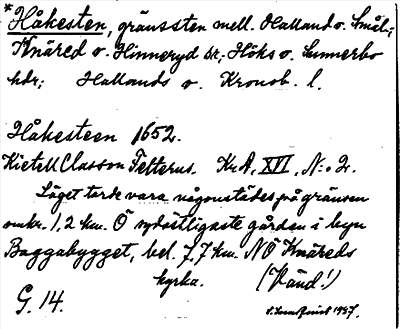 * Håkesten, gränssten mell. Halland o. Smål.;
Knäred o. Hinneryd sr; Höks o. Sunnerbo
hdr; Hallands o. Kronob. l.
Håkesteen 1652.
Kietell Classon Felterus. Kr. A, XVI, N:o 2.
Läget torde vara någonstädes på gränsen
omkr. 1,2 km. Ö sydöstligaste gården i byn
Baggabygget, bel. 7,7 km. NÖ Knäreds
kyrka. (Vänd!)
G. 14.
1937.